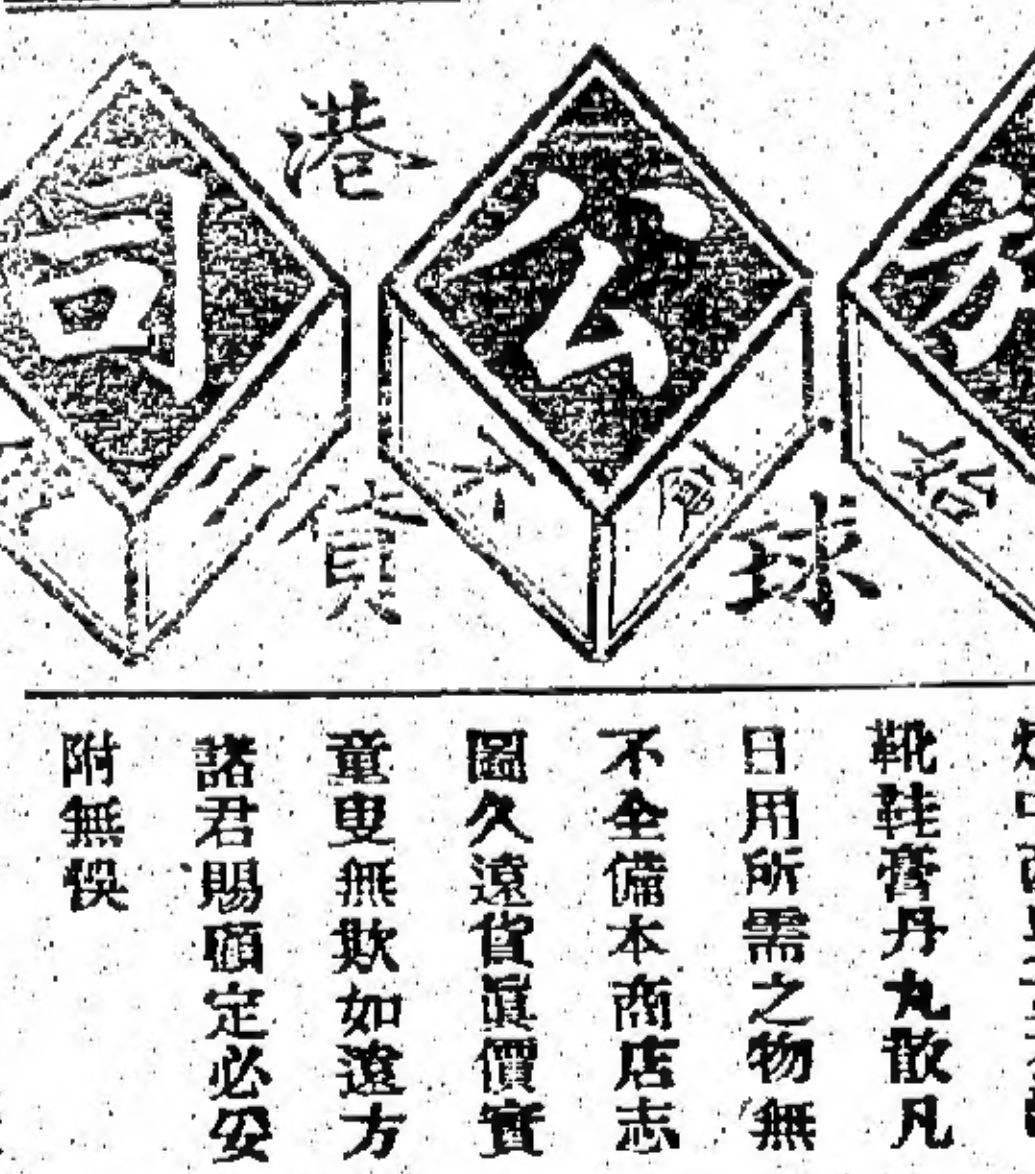 方公司
球
港
貨
靴鞋膏丹丸散凡
日用所需之物無
不全備本商店志
圖久遠貨眞價實
童叟無欺如遠方
諸君賜顧定必妥
附無悞